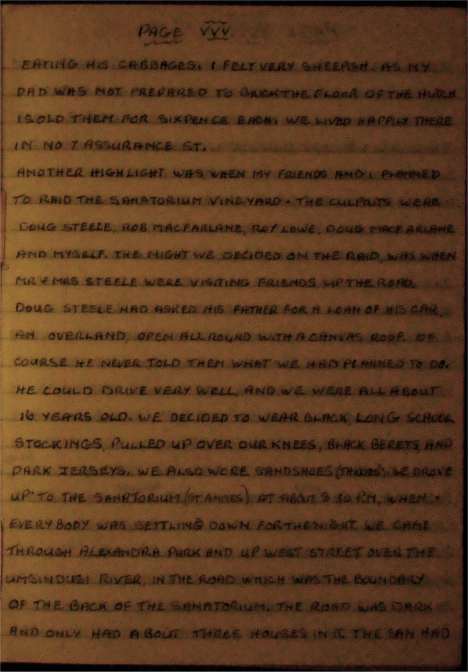 PAGE VVV.
EATING HIS CABBAGES. I FELT VERY SHEEPISH. AS MY
DAD WAS NOT PREPARED TO BRICK THE FLOOR OF THE HUTCH
I SOLD THEM FOR SIXPENCE EACH. WE LIVED HAPPILY THERE
IN NO 7 ASSURANCE ST.
ANOTHER HIGHLIGHT WAS WHEN MY FRIENDS AND I PLANNED
TO RAID THE SANATORIUM VINEYARD. THE CULPRITS WERE
DOUG STEELE, ROB MACFARLANE, ROY LOWE, DOUG MACFARLANE
AND MYSELF. THE NIGHT WE DECIDED ON THE RAID, WAS WHEN
MR & MRS STEELE WERE VISITING FRIENDS UP THE ROAD.
DOUG STEELE HAD ASKED HIS FATHER FOR A LOAN OF HIS CAR,
AN OVERLAND, OPEN ALL ROUND WITH A CANVAS ROOF. OF
COURSE HE NEVER TOLD THEM WHAT WE HAD PLANNED TO DO.
HE COULD DRIVE VERY WELL AND WE WERE ALL ABOUT
16 YEARS OLD. WE DECIDED TO WEAR BLACK, LONG SCHOOL
STOCKINGS, PULLED UP OVER OUR KNEES, BLACK BERETS AND
DARK JERSEYS. WE ALSO WORE SANDSHOES (TACKIES). WE DROVE
UP TO THE SANATORIUM (ST ANNES) AT ABOUT 8 30 P.M, WHEN
EVERYBODY WAS SETTLING DOWN FOR THE NIGHT. WE CAME
THROUGH ALEXANDRA PARK AND UP WEST STREET OVER THE
UMSINDUSI RIVER, IN THE ROAD WHICH WAS THE BOUNDARY
OF THE BACK OF THE SANATORIUM. THE ROAD WAS DARK
AND ONLY HAD ABOUT THREE HOUSES IN IT. THE SAN HAD